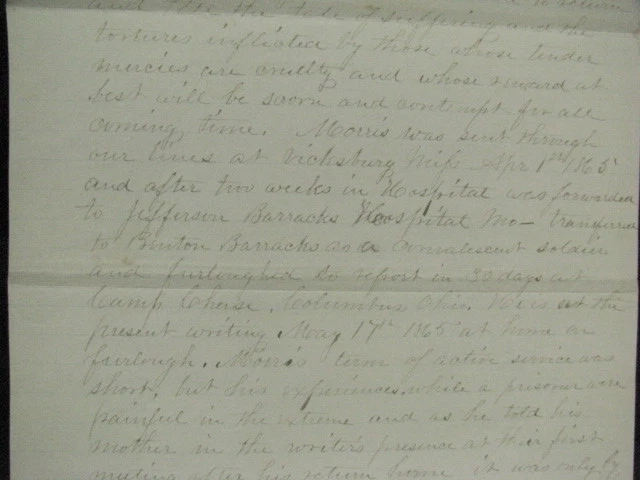 to return
and tell the tale of suffering and the
tortures inflicted by those whose tender
mercies are cruelty and whose reward at
best will be scorn and contempt for all
coming time. Morris was sent through
our lines at Vicksburg Miss Apr 1st 1865
and after two weeks in Hospital was forwarded
to Jefferson Barracks Hospital Mo - transferred
to Benton Barracks as a convalescent soldier
and furloughed to report in 30 days at
Camp Chase, Columbus Ohio. He is at the
present writing May 17th 1865 at home on
furlough. Morris term of active service was
short, but his experiences while a prisoner were
painful in the extreme and as he told his
mother in the writer's presence at their first
meeting after his return home it was only by